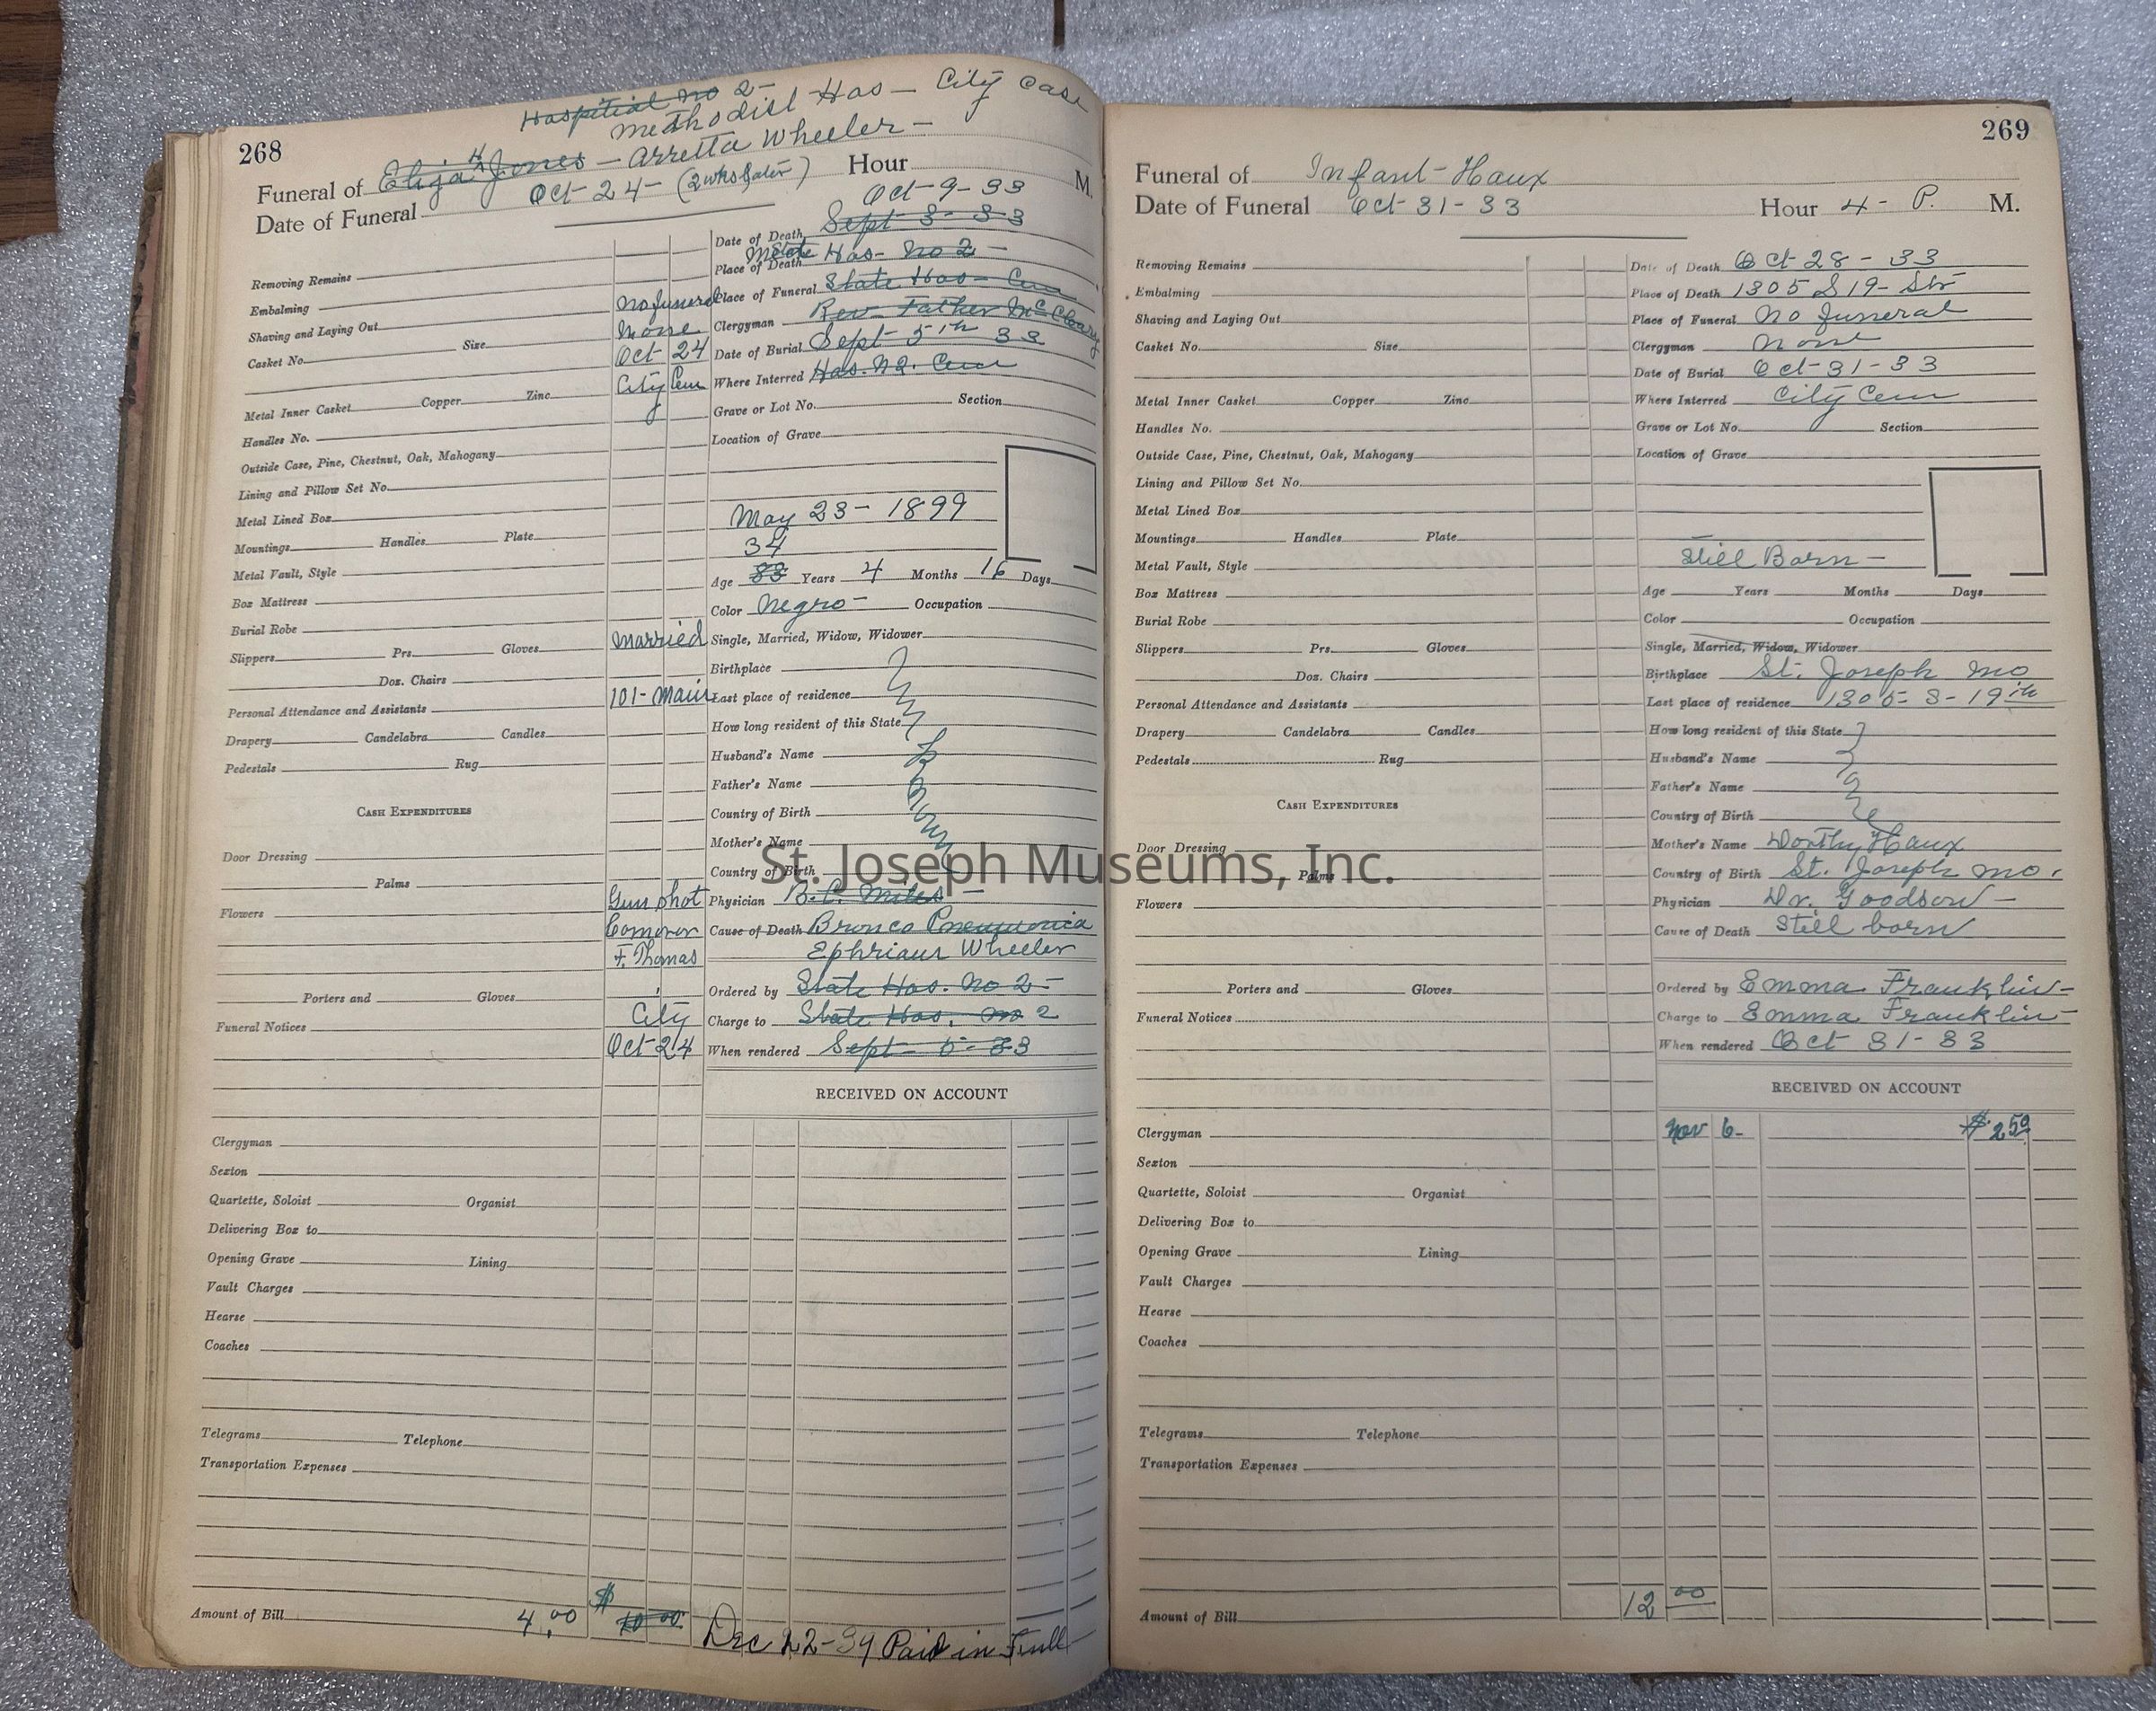 Hospitial no 2-
Methodist Hos - City Case
268
Funeral of Eliza H Jones - Arretta Wheeler - Hour M.
Date of Funeral Oct - 24 - (2 wks later)
Oct - 9 - 33
Date of Death Sept - 3 - 33
Place of Death State Hos - No 2 -
Removing Remains
Embalming no funeral Place of Funeral State Hos - Cem
Shaving and Laying Out none Clergyman Rev - Father McCleary
Casket No. Size Oct - 24 Date of Burial Sept - 5th 33
City Cem Where Interred Hos. No 2. Cem
Metal Inner Casket Copper Zinc
Grave or Lot No. Section
Handles No.
Location of Grave
Outside Case, Pine, Chestnut, Oak, Mahogany
Lining and Pillow Set No.
Metal Lined Box May 23 - 1899
Mountings Handles Plate 34
Metal Vault, Style Age 33 Years 4 Months 16 Days
Box Mattress Color Negro - Occupation
Burial Robe married Single, Married, Widow, Widower
Slippers Prs. Gloves Birthplace
Doz. Chairs 101 - Main Last place of residence
Personal Attendance and Assistants How long resident of this State
Drapery Candelabra Candles Husband's Name
Pedestals Rug Father's Name
CASH EXPENDITURES Country of Birth
Door Dressing Mother's Name
Palms Country of Birth
Flowers Gun shot Physician B. C. Miles -
Coroner Cause of Death Bronco Pneumonia
F. Thomas Ephriam Wheeler
Porters and Gloves Ordered by State Hos. No 2 -
Funeral Notices City Charge to State Hos. no 2
Oct - 24 When rendered Sept - 5 - 33
RECEIVED ON ACCOUNT
Clergyman
Sexton
Quartette, Soloist Organist
Delivering Box to
Opening Grave Lining
Vault Charges
Hearse
Coaches
Telegrams Telephone
Transportation Expenses
Amount of Bill 4.00 $ 10 00 Dec 22 - 39 Paid in Full
269
Funeral of Infant - Haux
Date of Funeral Oct - 31 - 33 Hour 4 - P. M.
Removing Remains Date of Death Oct - 28 - 33
Embalming Place of Death 1305 S 19 - Str
Shaving and Laying Out Place of Funeral No funeral
Casket No. Size Clergyman None
Date of Burial Oct - 31 - 33
Metal Inner Casket Copper Zinc Where Interred City Cem
Handles No. Grave or Lot No. Section
Outside Case, Pine, Chestnut, Oak, Mahogany Location of Grave
Lining and Pillow Set No.
Metal Lined Box
Mountings Handles Plate
Metal Vault, Style Still Born -
Box Mattress Age Years Months Days
Burial Robe Color Occupation
Slippers Prs. Gloves Single, Married, Widow, Widower
Doz. Chairs Birthplace St. Joseph Mo
Personal Attendance and Assistants Last place of residence 1305 - S - 19th
Drapery Candelabra Candles How long resident of this State
Pedestals Rug Husband's Name
Father's Name
CASH EXPENDITURES Country of Birth
Door Dressing Mother's Name Dorthy Haux
Palms Country of Birth St. Joseph Mo.
Flowers Physician Dr. Goodson -
Cause of Death Still born
Porters and Gloves Ordered by Emma Franklin -
Funeral Notices Charge to Emma Franklin -
When rendered Oct 31 - 33
RECEIVED ON ACCOUNT
Clergyman Nov 6 - $ 2 50
Sexton
Quartette, Soloist Organist
Delivering Box to
Opening Grave Lining
Vault Charges
Hearse
Coaches
Telegrams Telephone
Transportation Expenses
Amount of Bill 12 00
St. Joseph Museums, Inc.